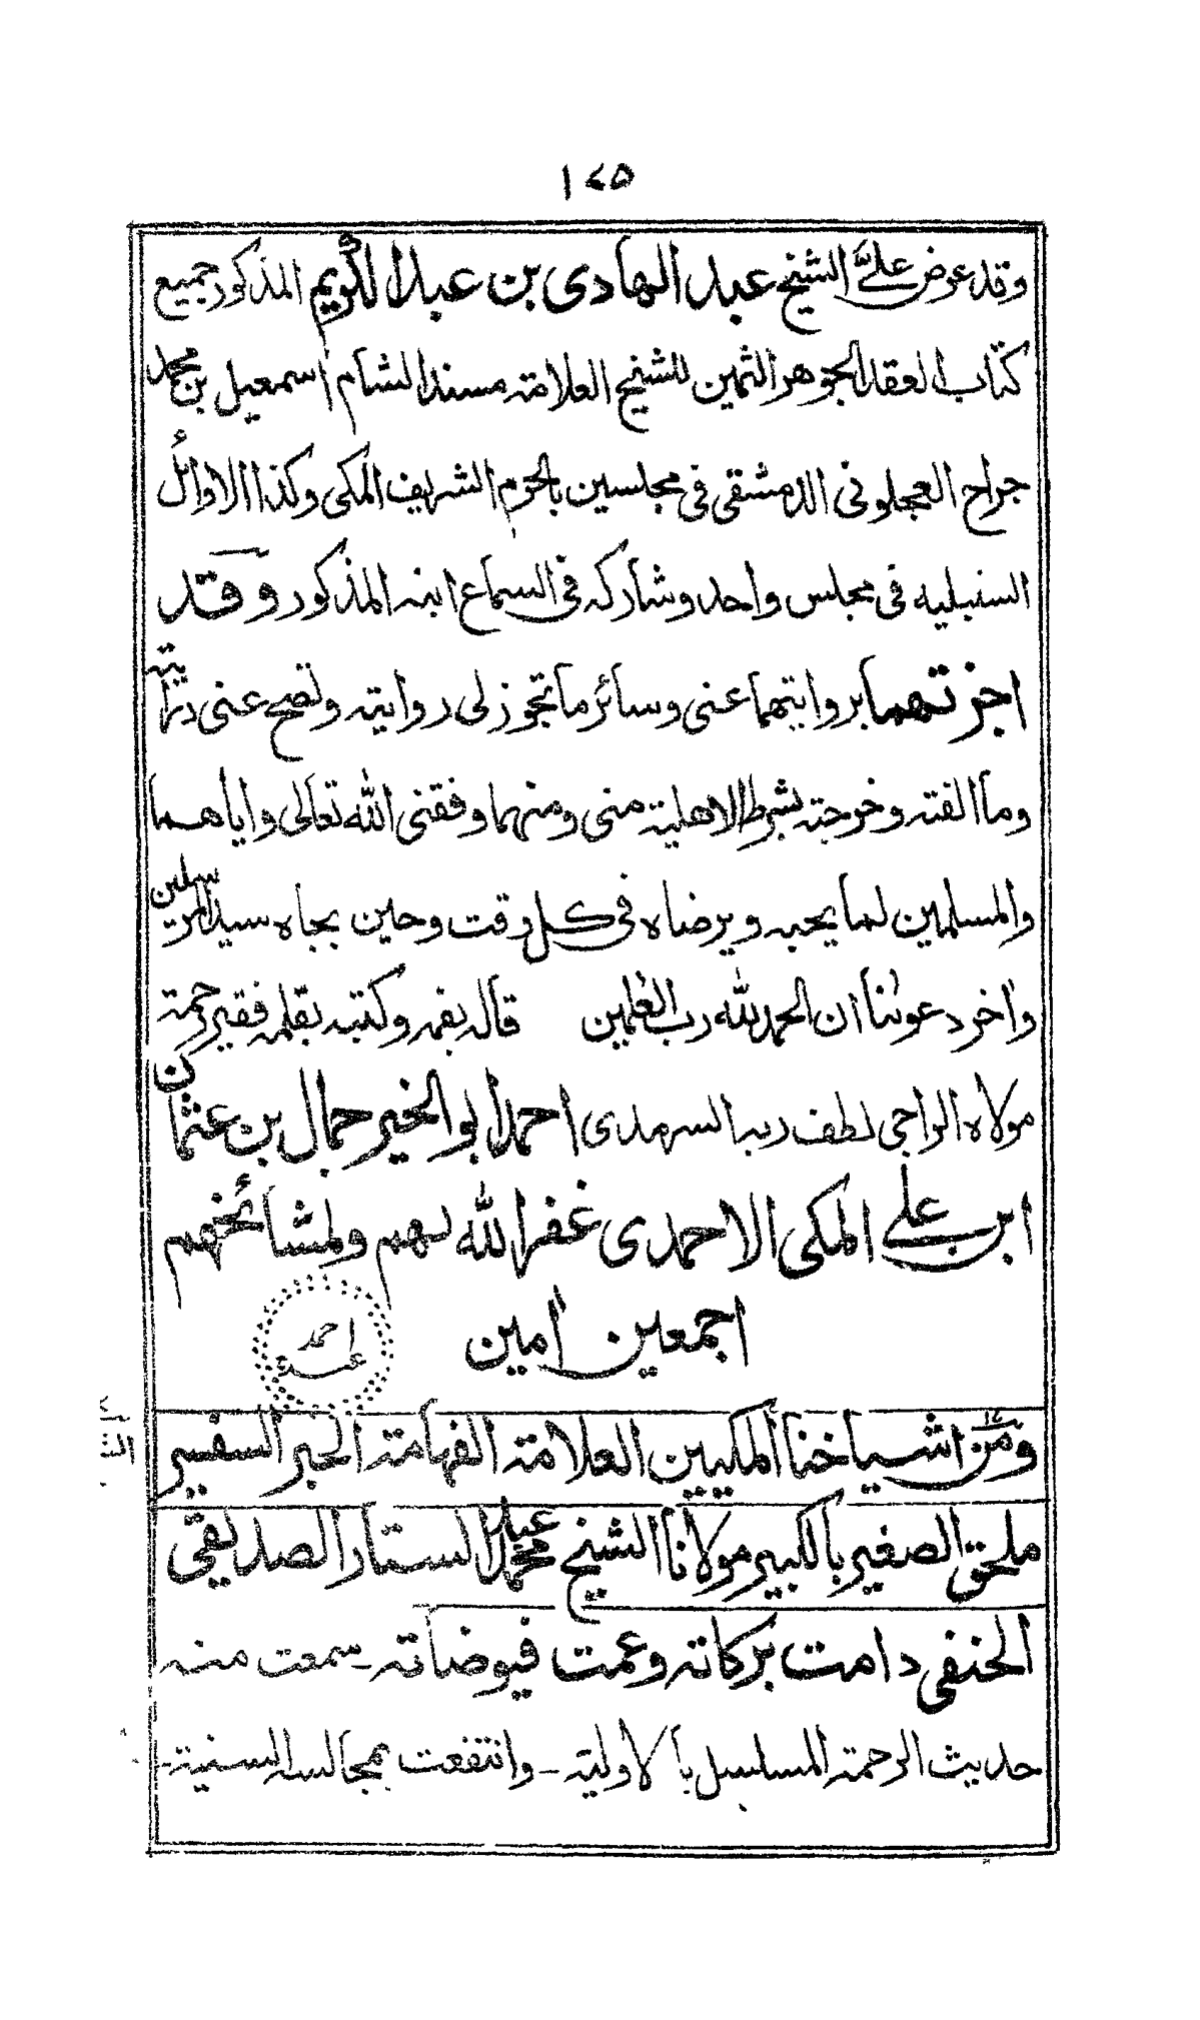 ١٤٥
وقد عرض عليَّ الشيخ عبد الهادى بن عبد الكريم المذكور جميع
كتاب العقد الجوهر الثمين للشيخ العلامة مسند الشام اسمعيل بن محمد
جراح العجلونى الدمشقى فى مجلسين بالحرم الشريف المكى وكذا الاوائل
السنبليه فى مجلس واحد وشاركه فى السماع ابنه المذكور وقد
اجزتهما بروايتهما عنى وسائر ما تجوز لى روايته وتصح عنى درايته
وما الفته وخرجته بشرط الاهلية منى ومنهما وفقنى الله تعالى واياهما
والمسلمين لما يحبه ويرضاه فى كل وقت وحين بجاه سيد المرسلين
واٰخر دعوٰنا ان الحمد لله رب العٰلمين قاله بفمه وكتبه بقلمه فقير رحمة
مولاه الراجى لطف ربه السرمدى احمد ابو الخير جمال بن عثمان
ابن على المكى الاحمدى غفر الله لهم ولمشائخهم
اجمعين اٰمين
احمد
ومن اشياخنا المكيين العلامة الفهامة الحبر السفسير
ملحق الصغير بالكبير مولانا الشيخ محمد عبد الستار الصديقى
الحنفى دامت بركاته وعمت فيوضاته - سمعت منه
حديث الرحمة المسلسل بالاولية - وانتفعت بمجالسه السنية -